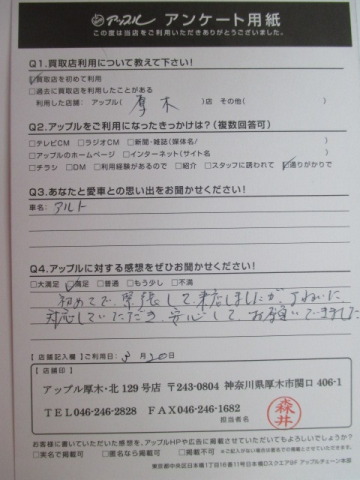 アップル アンケート用紙
この度は当店をご利用いただきありがとうございました。
Q1.買取店利用について教えて下さい!
☑買取店を初めて利用
□過去に買取店を利用したことがある
利用した店舗: アップル( 厚木 )店 その他( )
Q2.アップルをご利用になったきっかけは?(複数回答可)
□テレビCM □ラジオCM □新聞・雑誌(媒体名/ )
□アップルのホームページ □インターネット(サイト名 )
□チラシ □DM □利用経験があるので □紹介 □スタッフに誘われて ☑通りがかりで
Q3.あなたと愛車との思い出をお聞かせください!
車名: アルト
Q4.アップルに対する感想をぜひお聞かせください!
□大満足 ☑満足 □普通 □もう少し □不満
初めてで、緊張して来店しましたが、丁ねいに
対応していただき、安心して、お願いできました
【店舗記入欄】ご利用日: 3月20日
【店舗印】
アップル厚木・北129号店 〒243-0804 神奈川県厚木市関口406-1
TEL046-246-2828 FAX046-246-1682
担当者名 森井
お客様に書いていただいた感想を、アップルHPや広告に掲載させていただいてもよろしいでしょうか?
□実名で掲載可 □匿名なら掲載可 □掲載不可
東京都中央区日本橋1丁目16番11号日本橋Dスクエア9F アップルチェーン本部